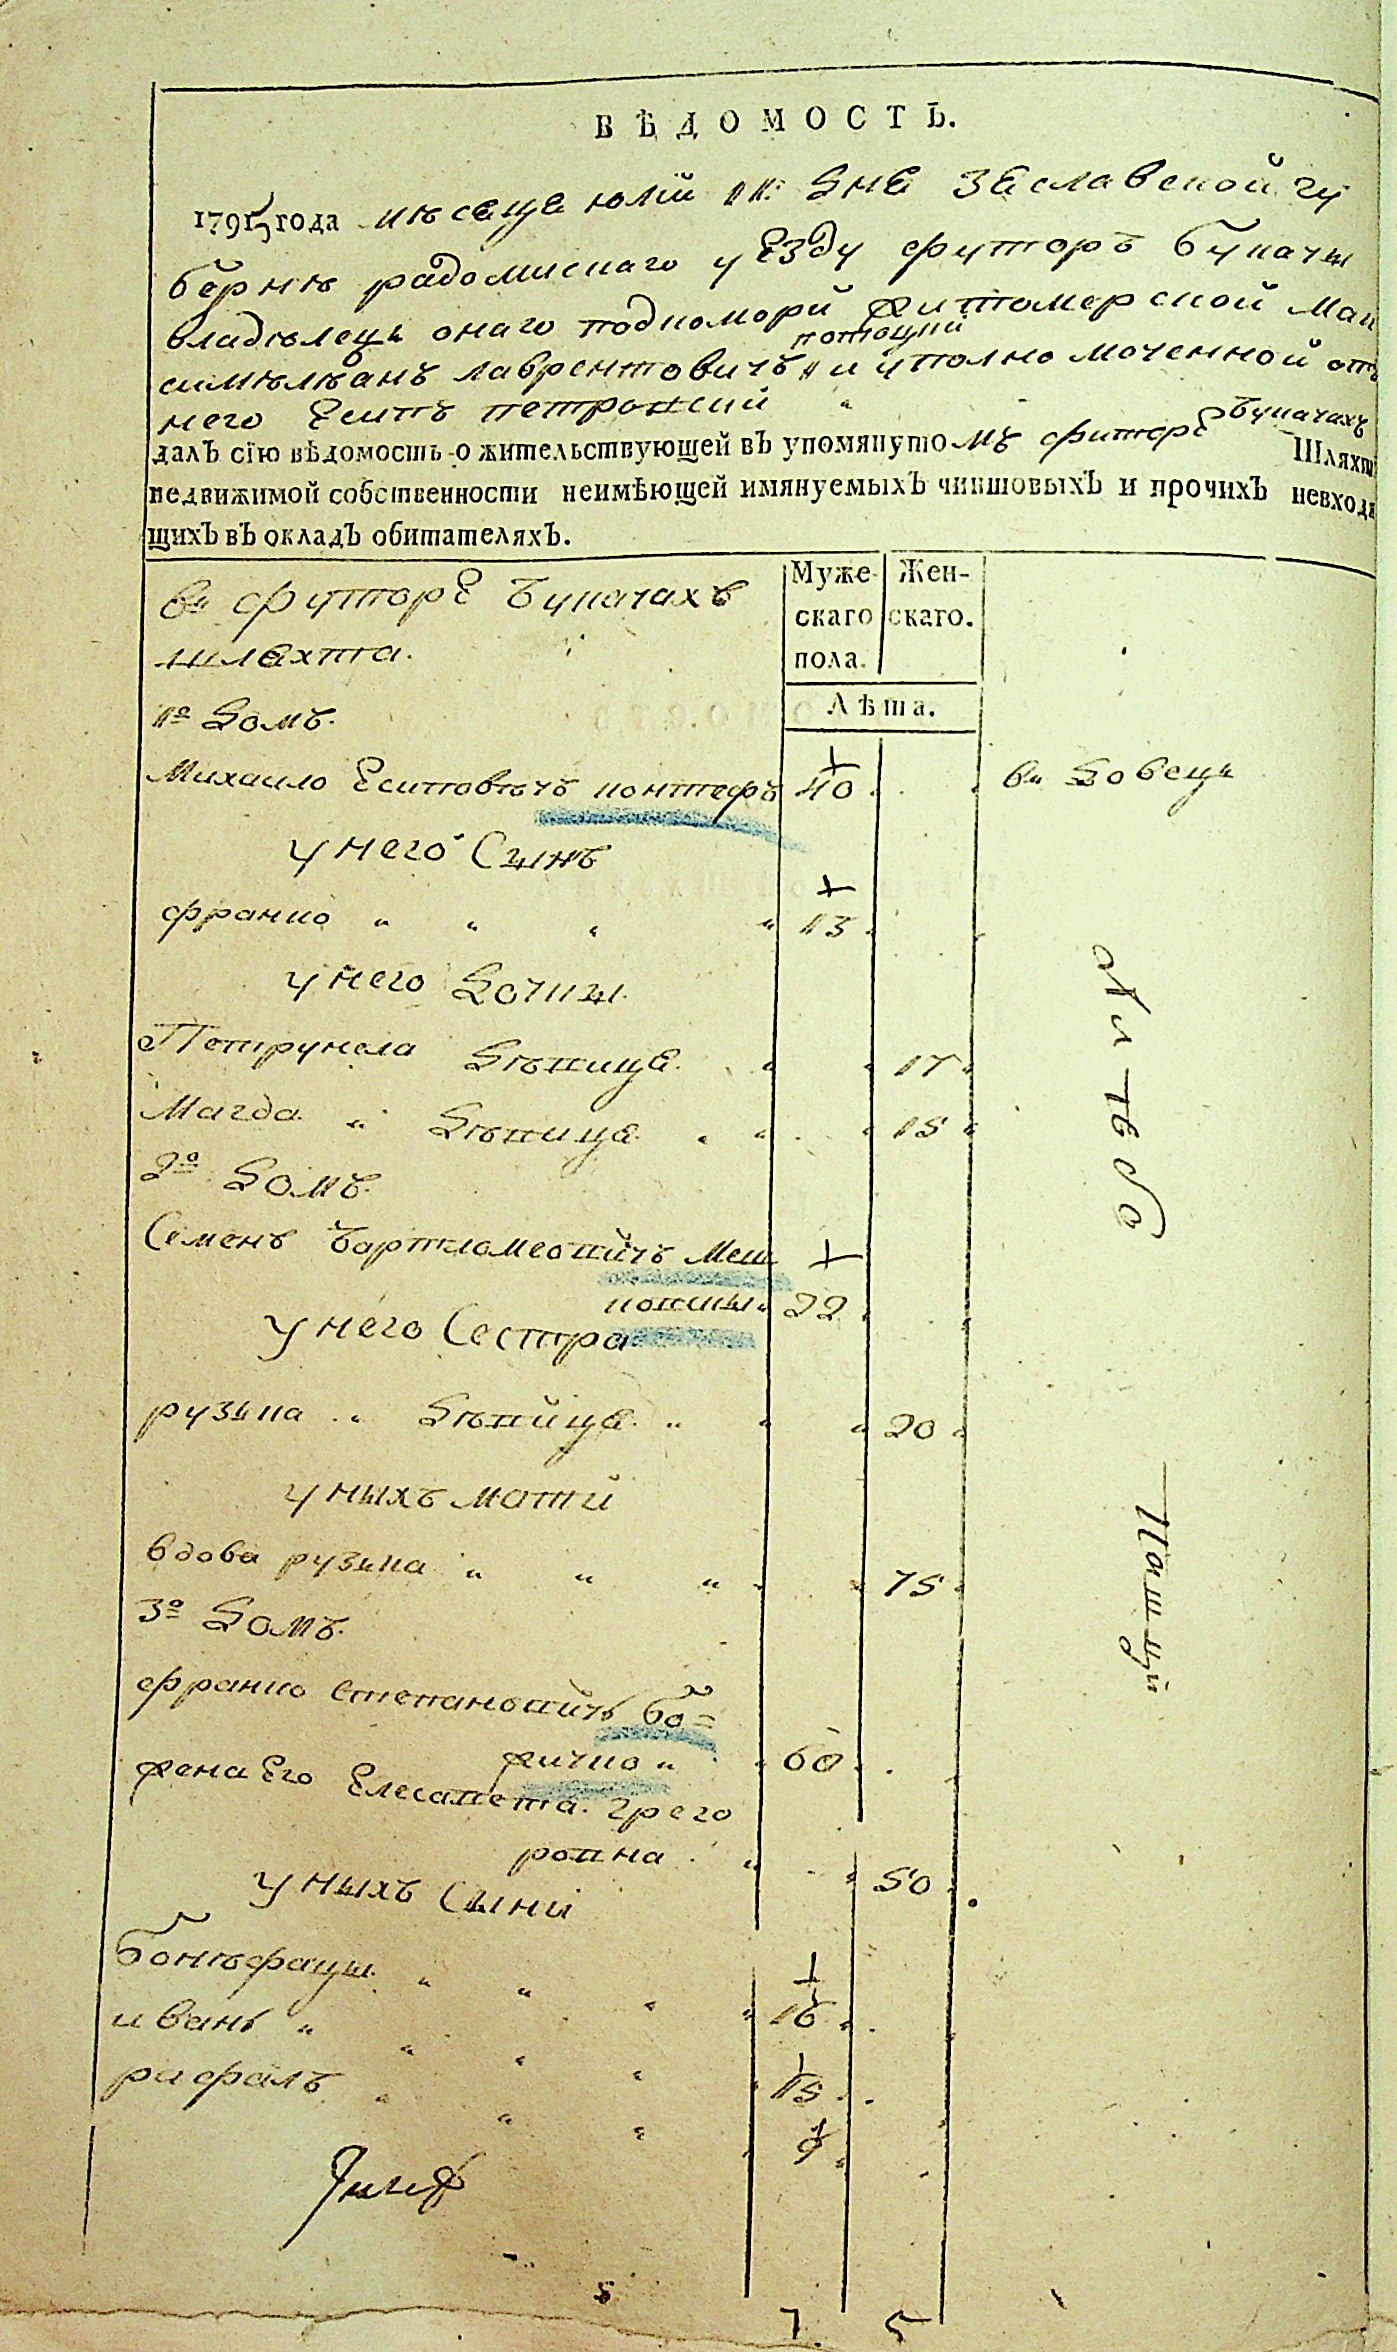 ВѢДОМОСТЬ.
1795 года мѣсяця юлїй 11: дня Заславской гу
бернѣ радомислкаго уезду футоръ букачы
владѣлець онаго подкоморй житомерской Мак
симѣлѣанъ лаврентовичъ потоцкий и уполномоченной отъ
него Есипъ петровский
далЪ сїю вѣдомость о жительствующей вЪ упомянутомъ футоре Букачахъ Шляхты
недвижимой собственности неимѣющей имянуемыхЪ чиншовыхЪ и прочихЪ невходя
щихЪ вЪ окладЪ обитателяхЪ.
вь футоре Букачахъ
шляхта.
Муже скаго пола. Жен- скаго.
Лѣта.
1º домъ.
Михаило Есиповичъ 40 вь довець
у него Сынъ
франко 13
у него дочкы
Петрунела дѣвица 17
Магда дѣвица 15
2º домъ.
Семенъ Бартломеовичъ 22
у него Сестра
рузька дѣвица 20
у ныхъ мати
вдова рузька 75
3º домъ.
франко степановичъ 60
жена Его Елесавета грего
ровна 50
у ныхъ Сыни
бонѣфацы 16
ивань 15
рафалъ 9
7 5